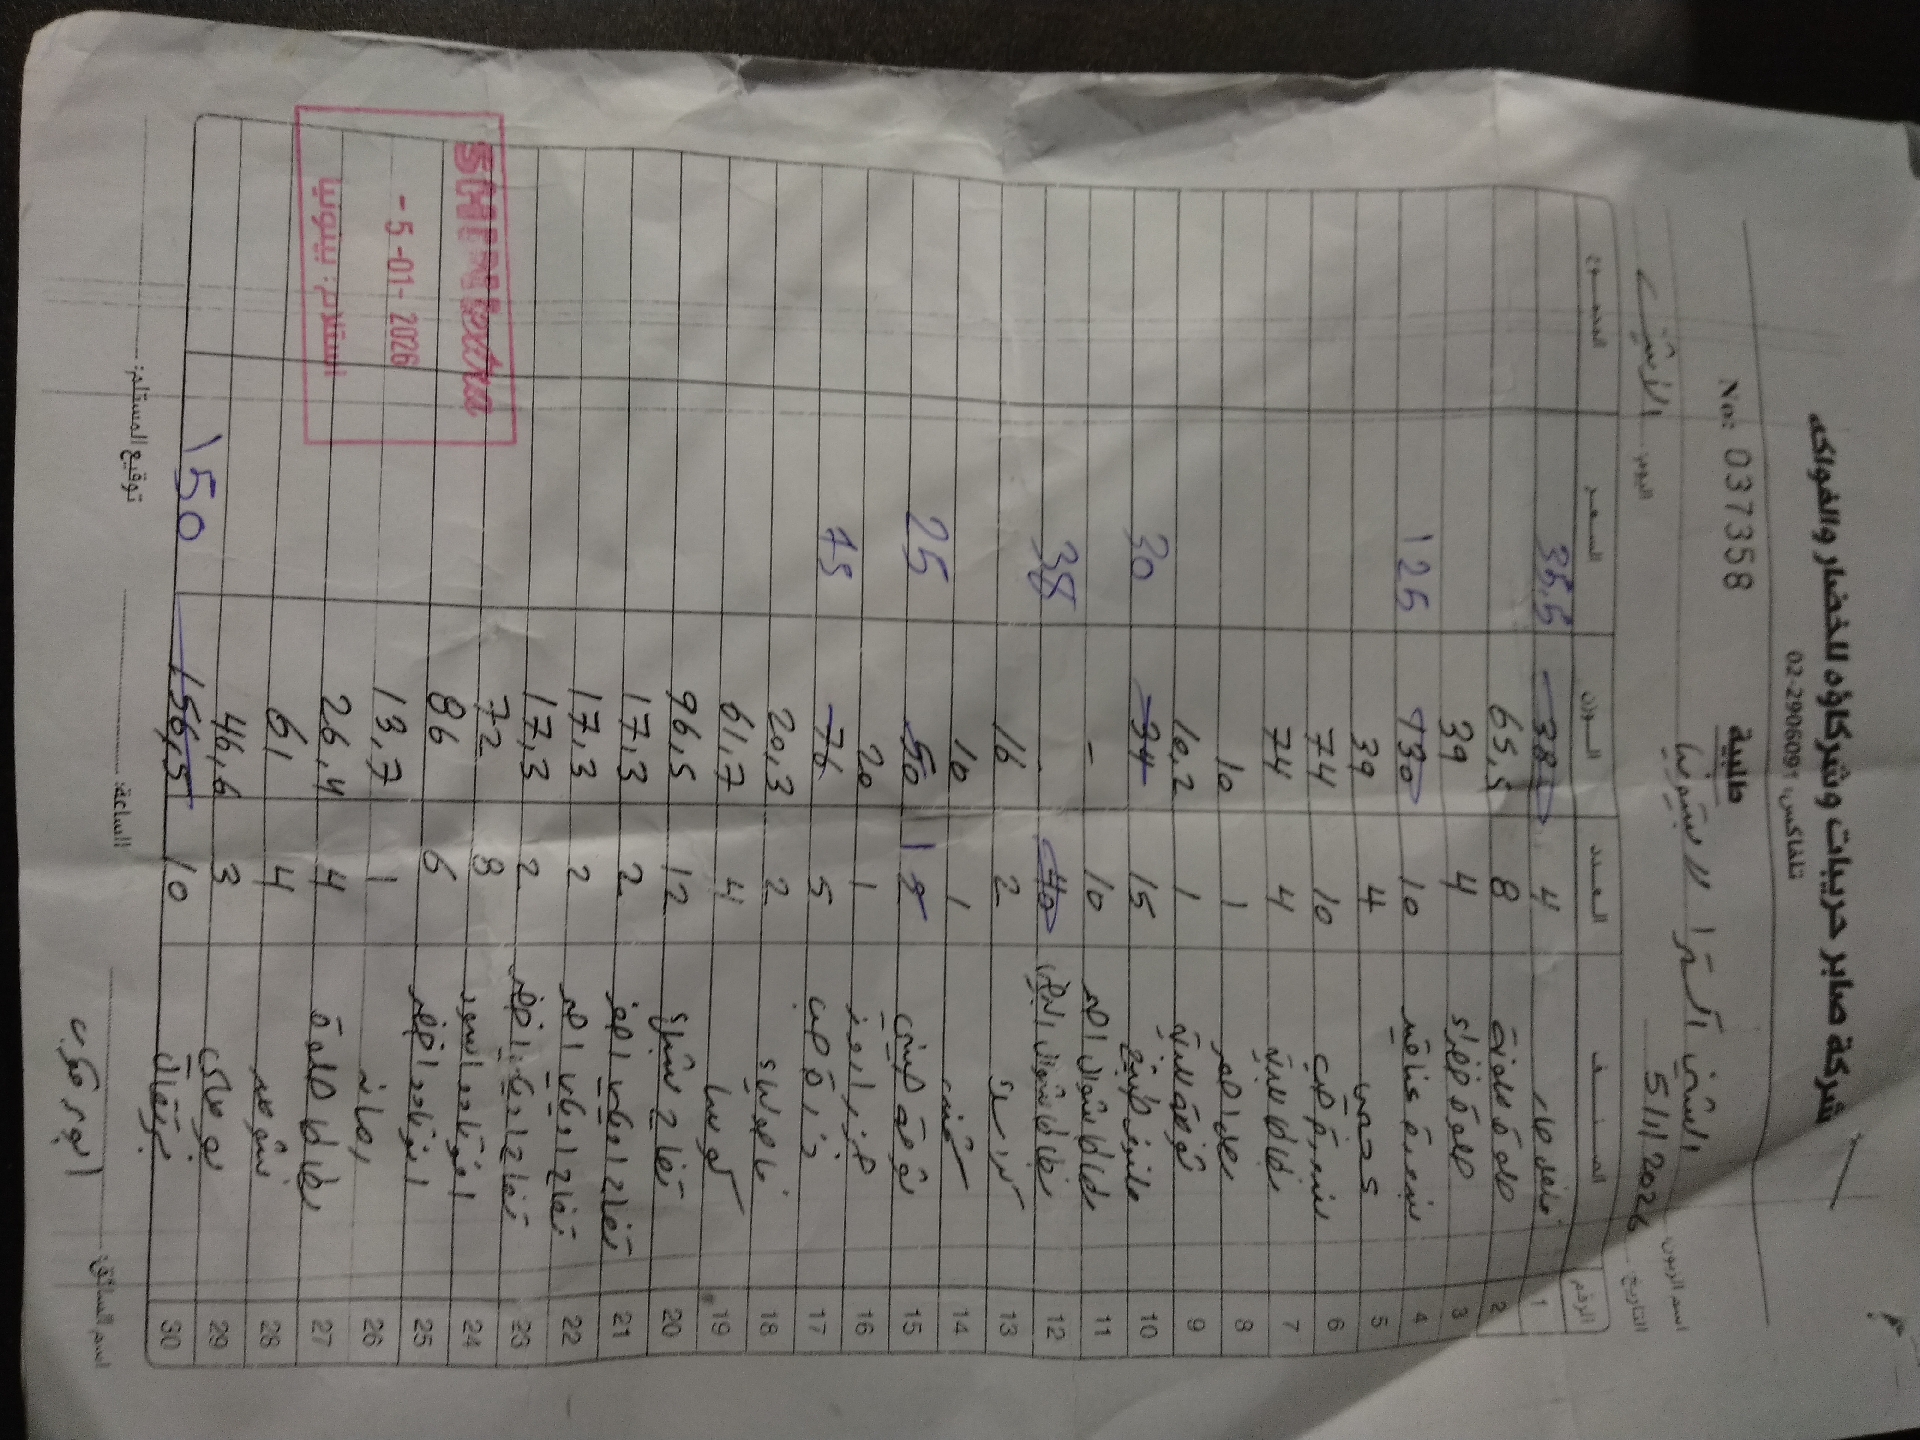 شركة صابر حريبات وشركاؤه للخضار والفواكه
تلفاكس: 02-2906091
طلبية
No: 037358
اسم الزبون: الشني اكسترا البيتونيا
التاريخ: 5/1/2026 اليوم: الاثنين
الرقم الصنف العدد الوزن السعر المجموع
1 فلفل حار 4 38 36,5
2 حلوة ملونة 8 65,5
3 حلوة خضراء 4 39
4 بندورة عناقيد 10 130 125
5 4 39
6 بندورة حب 10 74
7 بطاطا لبنية 4 74
8 بصل احمر 1 10
9 1 10,2
10 ملفوف 15 34 30
11 بطاطا شوال احمر 10 -
12 بطاطا شوال 40 38
13 2 16
14 1 10
15 18 50 25
16 جزر اصفر 1 20
17 ذرة حب 5 76 75
18 فاصوليا 2 20,3
19 كوسا 4 61,7
20 تفاح 12 96,5
21 تفاح 2 17,3
22 تفاح احمر 2 17,3
23 تفاح اخضر 2 17,3
24 افوكادو اسود 8 72
25 افوكادو اخضر 6 86
26 رمان 1 13,7
27 بطاطا حلوة 4 26,4
28 شومر 4 61
29 بوملي 3 46,6
30 برتقال 10 156,5 150
SHINI extra
-5-01-2026
استلام: بيتونيا
اسم السائق: الساعة: توقيع المستلم: